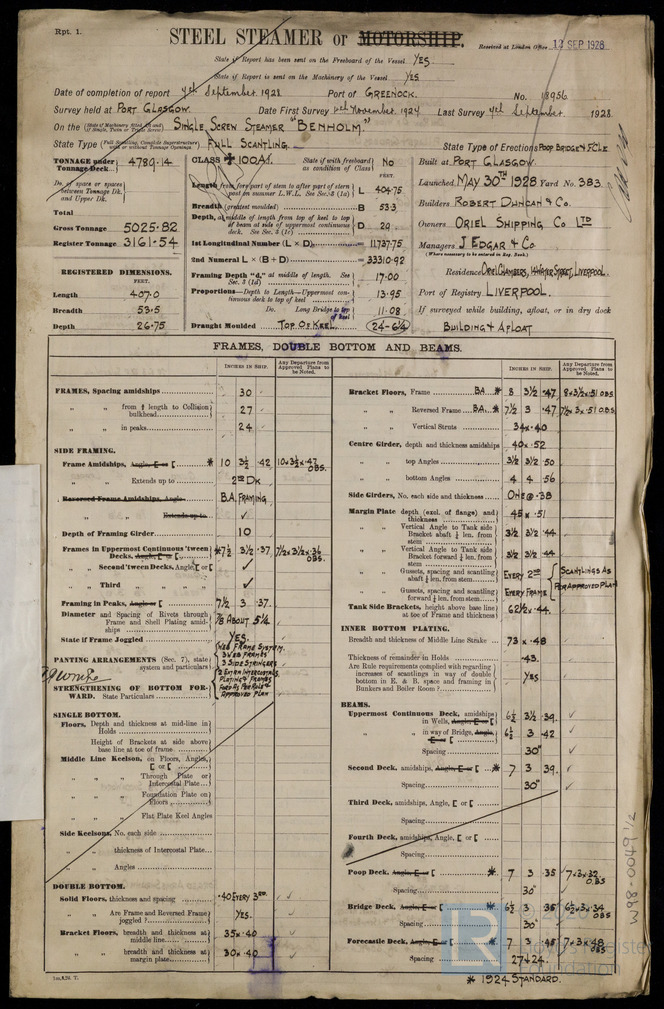 Rpt. 1.
STEEL STEAMER or MOTORSHIP.
Received at London Office 12 SEP 1928
State if Report has been sent on the Freeboard of the Vessel YES
State if Report is sent on the Machinery of the Vessel YES
Date of completion of report 4th September 1928 Port of GREENOCK. No. 18956
Survey held at PORT GLASGOW. Date First Survey November 1924 Last Survey 4th September 1928
On the SINGLE SCREW STEAMER "BENHOLM."
State Type FULL SCANTLING. State Type of Erections POOP BRIDGE & FCLE
TONNAGE under Tonnage Deck 4789.14
Do. of space or spaces between Tonnage Dk. and Upper Dk.
Total
Gross Tonnage 5025.82
Register Tonnage 3161.54
REGISTERED DIMENSIONS.
FEET.
Length 407.0
Breadth 53.5
Depth 26.75
CLASS ✠ 100A1. State if with freeboard as condition of Class No
FEET.
Length from fore part of stem to after part of stern post on summer L.W.L. See Sec. 3 (1a) L 404.75
Breadth (greatest moulded) B 53.3
Depth, at middle of length from top of keel to top of beam at side of uppermost continuous deck. See Sec. 3 (1c) D 29
1st Longitudinal Number (L × D) 11737.75
2nd Numeral L × (B + D) 33310.92
Framing Depth "d," at middle of length. See Sec. 3 (1d) 17.00
Proportions—Depth to Length—Uppermost continuous deck to top of keel 13.95
Do. Long Bridge to top of keel 11.08
Draught Moulded TOP OF KEEL. 24-6¼
Built at PORT GLASGOW.
Launched MAY 30TH 1928 Yard No. 383.
Builders ROBERT DUNCAN & CO.
Owners ORIEL SHIPPING CO LTD
Managers J EDGAR & CO
(Where necessary to be entered in Reg. Book.)
Residence ORIEL CHAMBERS, 14 WATER STREET, LIVERPOOL.
Port of Registry LIVERPOOL.
If surveyed while building, afloat, or in dry dock
BUILDING & AFLOAT
FRAMES, DOUBLE BOTTOM AND BEAMS.
INCHES IN SHIP. Any Departure from Approved Plans to be Noted.
FRAMES, Spacing amidships 30
" " from ⅕ length to Collision bulkhead 27
" " in peaks 24
SIDE FRAMING.
Frame Amidships, Angle, E or [ * 10 3½ .42 10×3½×.47 OBS.
" " Extends up to 2ND DK
Reversed Frame Amidships, Angle B.A. FRAMING
" " Extends up to ✓
Depth of Framing Girder 10
Frames in Uppermost Continuous 'tween Decks, Angle, E or [ * 7½ 3½ .37 7½×3½×.36 OBS
" Second 'tween Decks, Angle, [ or [ ✓
" Third " " ✓
Framing in Peaks, Angle or [ 7½ 3 .37
Diameter and Spacing of Rivets through Frame and Shell Plating amidships 7/8 ABOUT 5¼
State if Frame Joggled YES.
PANTING ARRANGEMENTS (Sec. 7), state system and particulars
STRENGTHENING OF BOTTOM FORWARD. State Particulars
WEB FRAME SYSTEM.
3 WEB FRAMES
3 SIDE STRINGERS
2 EXTRA INTERCOSTALS
PLATING & FRAMES
APPROVED PLAN
SINGLE BOTTOM.
Floors, Depth and thickness at mid-line in Holds
Height of Brackets at side above base line at toe of frame
Middle Line Keelson, on Floors, Angles, [ or [
" " Through Plate or Intercostal Plate
" " Foundation Plate on Floors
" " Flat Plate Keel Angles
Side Keelsons, No. each side
" " thickness of Intercostal Plate
" " Angles
DOUBLE BOTTOM.
Solid Floors, thickness and spacing .40 EVERY 3RD.
" " Are Frame and Reversed Frame joggled? YES.
Bracket Floors, breadth and thickness at middle line 35 × .40
" " breadth and thickness at margin plate 30 × .40
INCHES IN SHIP. Any Departure from Approved Plans to be Noted.
Bracket Floors, Frame BA * 8 3½ .47 8×3½×.51 OBS.
" " Reversed Frame BA. * 7½ 3 .47 7½×3×.51 OBS.
" " Vertical Struts 34 × .40
Centre Girder, depth and thickness amidships 40 × .52
" " top Angles 3½ 3½ .50
" " bottom Angles 4 4 .56
Side Girders, No. each side and thickness ONE @ .38
Margin Plate depth (excl. of flange) and thickness 45 × .51
" " Vertical Angle to Tank side Bracket abaft ¼ len. from stem 3½ 3½ .44
" " Vertical Angle to Tank side Bracket forward ¼ len. from stem 3½ 3½ .44
" " Gussets, spacing and scantling abaft ¼ len. from stem EVERY 2ND
" " Gussets, spacing and scantling forward ¼ len. from stem EVERY FRAME
SCANTLINGS AS PER APPROVED PLAN
Tank Side Brackets, height above base line at toe of Frame and thickness 62½ × .44.
INNER BOTTOM PLATING.
Breadth and thickness of Middle Line Strake 73 × .48
Thickness of remainder in Holds .43.
Are Rule requirements complied with regarding increases of scantlings in way of double bottom in E. & B. space and framing in Bunkers and Boiler Room? YES
BEAMS.
Uppermost Continuous Deck, amidships in Wells, Angle, E or [ 6½ 3½ .39. ✓
" " in way of Bridge, Angle, E or [ 6½ 3 .42 ✓
Spacing 30" ✓
Second Deck, amidships, Angle, E or [ * 7 3 .39. ✓
Spacing 30" ✓
Third Deck, amidships, Angle, [ or [
Spacing
Fourth Deck, amidships, Angle, [ or [
Spacing
Poop Deck, Angle, E or [ * 7 3 .35 7×3×.32 OBS
Spacing 30"
Bridge Deck, Angle, E or [ * 6½ 3 .35 6½×3×.34 OBS
Spacing 30"
Forecastle Deck, Angle, E or [ * 7 3 .45 7×3×.48 OBS
Spacing 27 & 24.
* 1924 STANDARD.
W98-0049 1/2
LR
Foundation